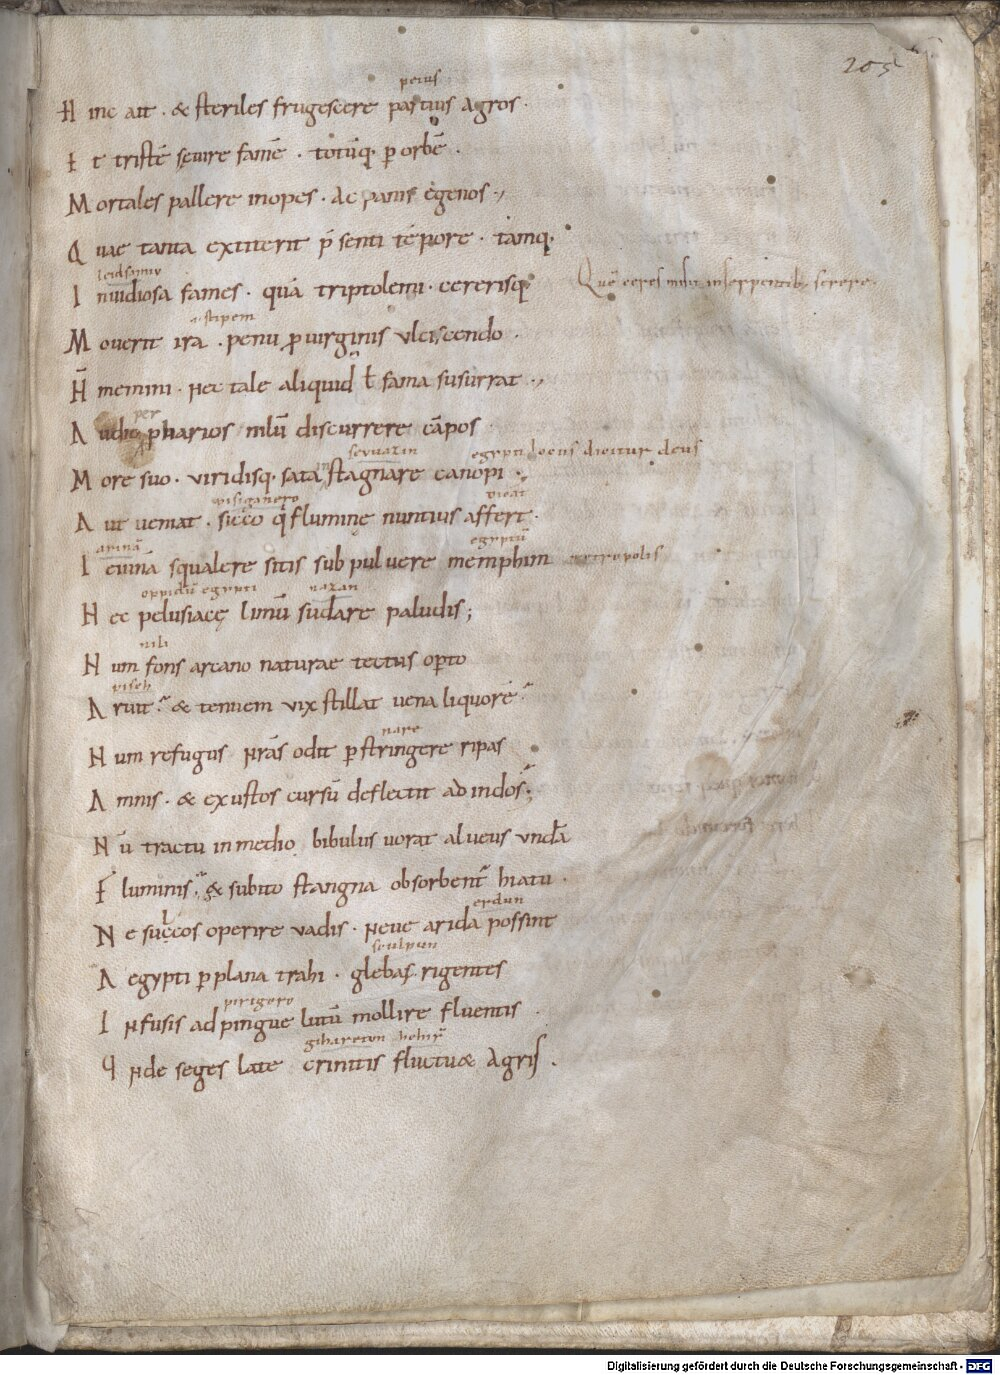 205
peius
H inc ait . & steriles frugescere partius agros .
E t tristē sęuire famē . totūq; p orbē .
M ortales pallere inopes . ac panis egenos .,
Q uae tanta extiterit p̄senti tēpore . tamq;
leidsamiu
I nuidiosa fames . quā triptolemi . cererisq; Quē ceres misit inserpentib; serere .
stipem
M ouerit ira . penu p uirginis ulciscendo .
H̄ memini . Nec tale aliquid t̄ fama susurrat .,
per
A udio pharios nilū discurrere cāpos
egypti locus dicitur deus
M ore suo . viridisq; sata stagnare canopi .,
uisiganero dicat
A ut ueniat . sicco q flumine nuntius affert .
arinā egyptū
I eiunā squalere sitis sub puluere memphim metropolis
oppidū egypti nazan
H ec pelusiacę limū sudare paludis ;
nili
N um fons arcano naturae tectus opto
piseh
A ruit . & tenuem vix stillat uena liquorē
nare
N um refugus Nr̄as odit pstringere ripas
A mnis . & exustos cursū deflectit ad indos ;
N ū tractu in medio bibulus uorat alueus undā
F luminis . & subito stangna obsorbent hiatu .
erdun
N e sulcos operire vadis . Neue arida possint
sculpun
A egypti p plana trahi . glebas rigentes
pirigero
I Nfusis ad pingue lutū mollire fluentis .
gihareton
U Nde seges late crinitis fluctuæ agris .
Digitalisierung gefördert durch die Deutsche Forschungsgemeinschaft - DFG